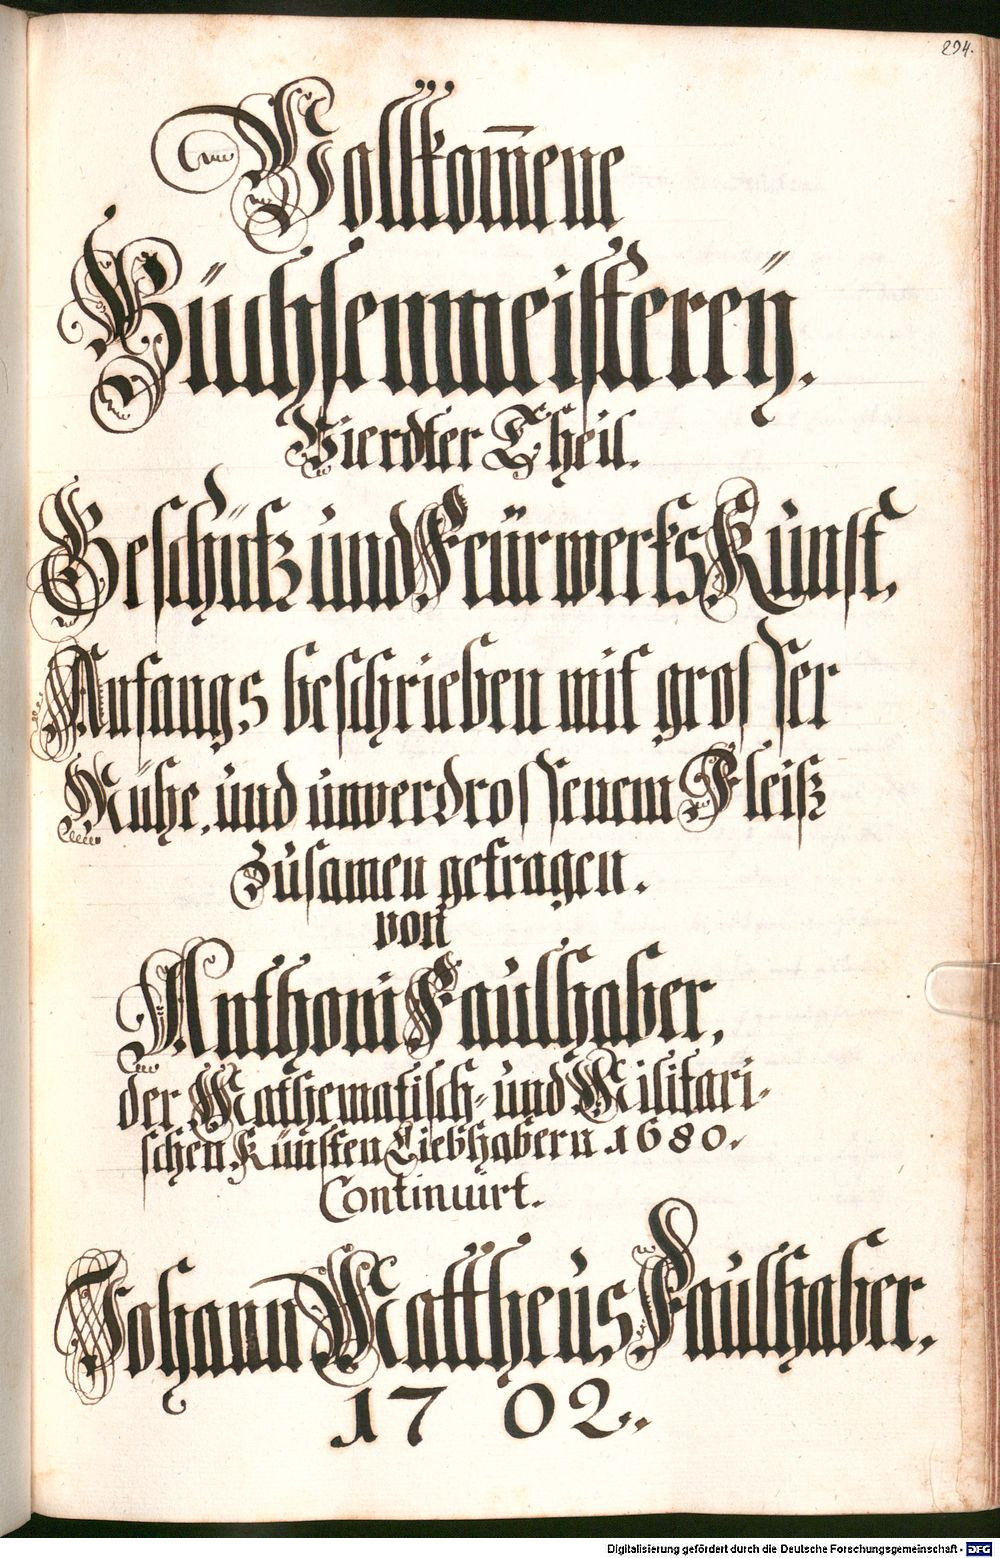 294.
Vollkom̅ene
Büchsenmeisterey.
Vierdter Theil.
Geschütz und Feürwerks Kunst,
Anfangs beschrieben mit grosser
Mühe, und unverdrossenem Fleiß
Zusamen getragen.
von
Anthoni Faulhaber,
der Mathematisch- und Militari-
schen Künsten Liebhabern 1680.
Continuirt.
Johann Mattheus Faulhaber.
1702.
Digitalisierung gefördert durch die Deutsche Forschungsgemeinschaft - DFG